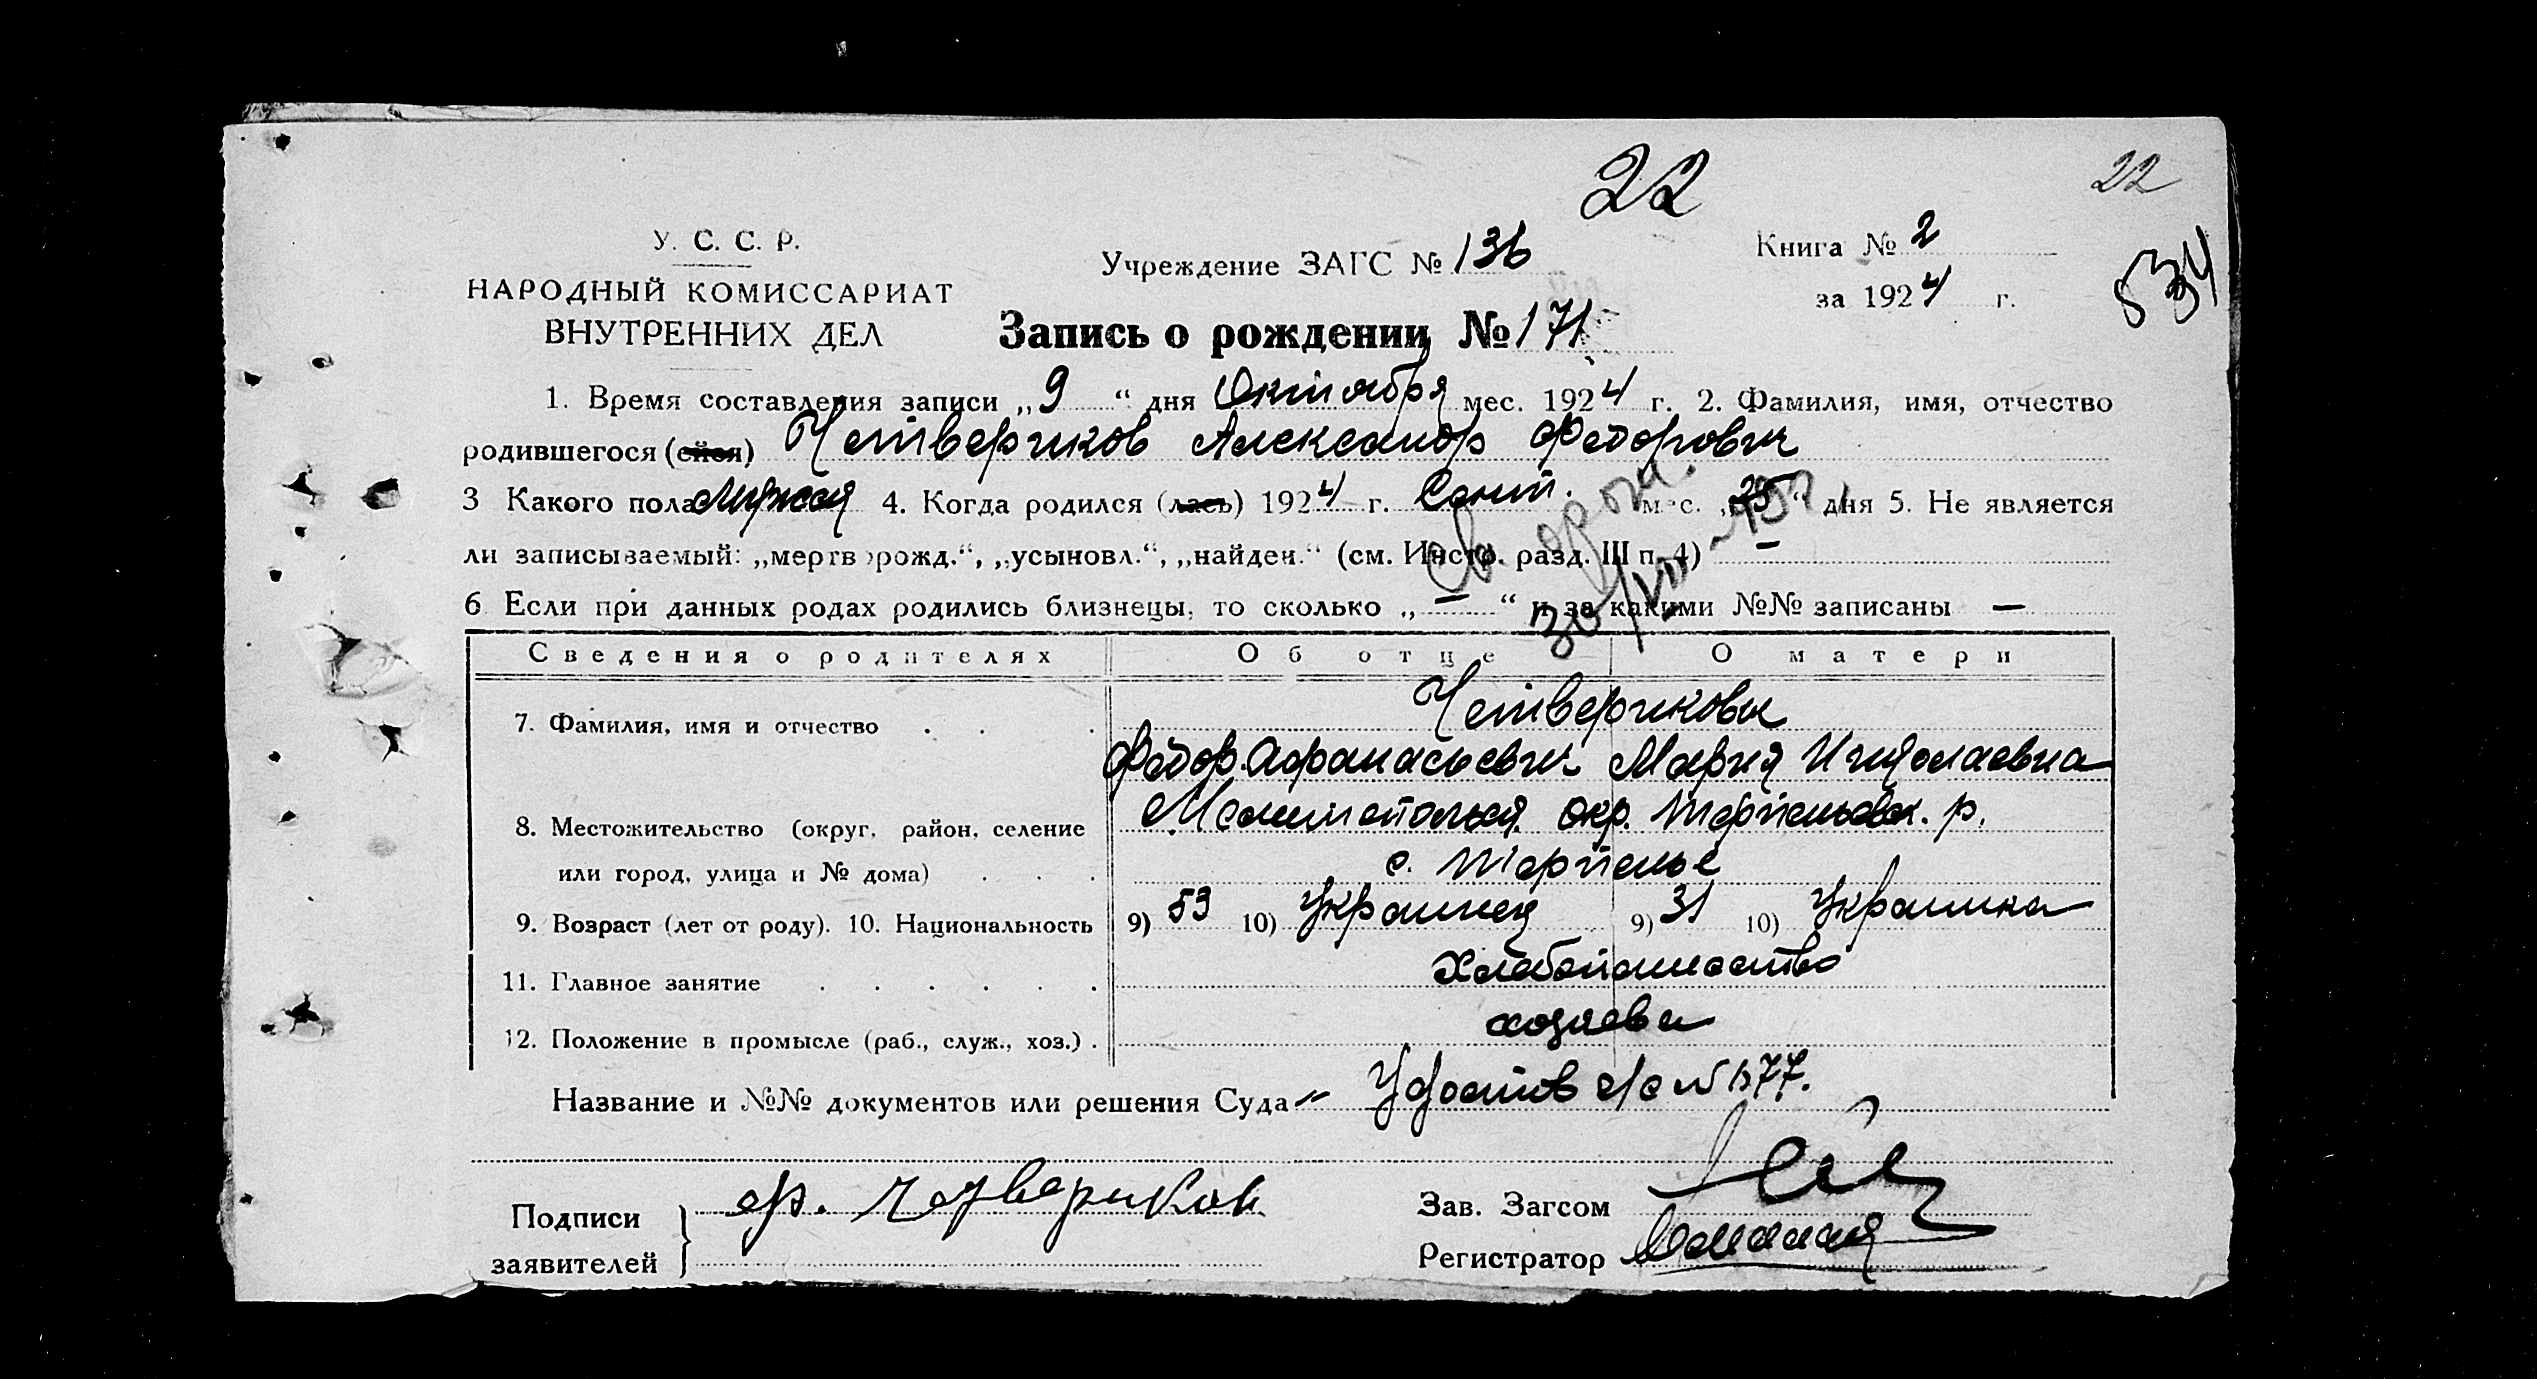 22
22
534
У. С. С. Р.
НАРОДНЫЙ КОМИССАРИАТ
ВНУТРЕННИХ ДЕЛ
Учреждение ЗАГС № 136
Книга № 2
за 1924 г.
Запись о рождении № 171
1. Время составления записи „9“ дня Октября мес. 1924 г. 2. Фамилия, имя, отчество
родившегося (ейся) Четвериков Александр Федорович
3 Какого пола Мужск 4. Когда родился (лась) 1924 г. Сент. мес. „25“ дня 5. Не является
ли записываемый: „мертворожд.“, „усыновл.“, „найден.“ (см. Инстр. разд. III п. 4) —
6 Если при данных родах родились близнецы, то сколько „—“ и за какими №№ записаны —
Св. 
30/VII
Сведения о родителях Об отце О матери
7. Фамилия, имя и отчество . . . Четвериковы
Федор Афанасьевич Мария Николаевна
8. Местожительство (округ, район, селение Мелитопольск. окр. Терпеньевск. р.
или город, улица и № дома) . . . с. Терпенье
9. Возраст (лет от роду). 10. Национальность 9) 53 10) Украинец 9) 31 10) Украинка
11. Главное занятие . . . . . . Хлебопашество
12. Положение в промысле (раб., служ., хоз.) . хозяева
Название и №№ документов или решения Суда — Удостов с/с № 1377.
Подписи
заявителей
Ф. Четвериков
Зав. Загсом
Регистратор